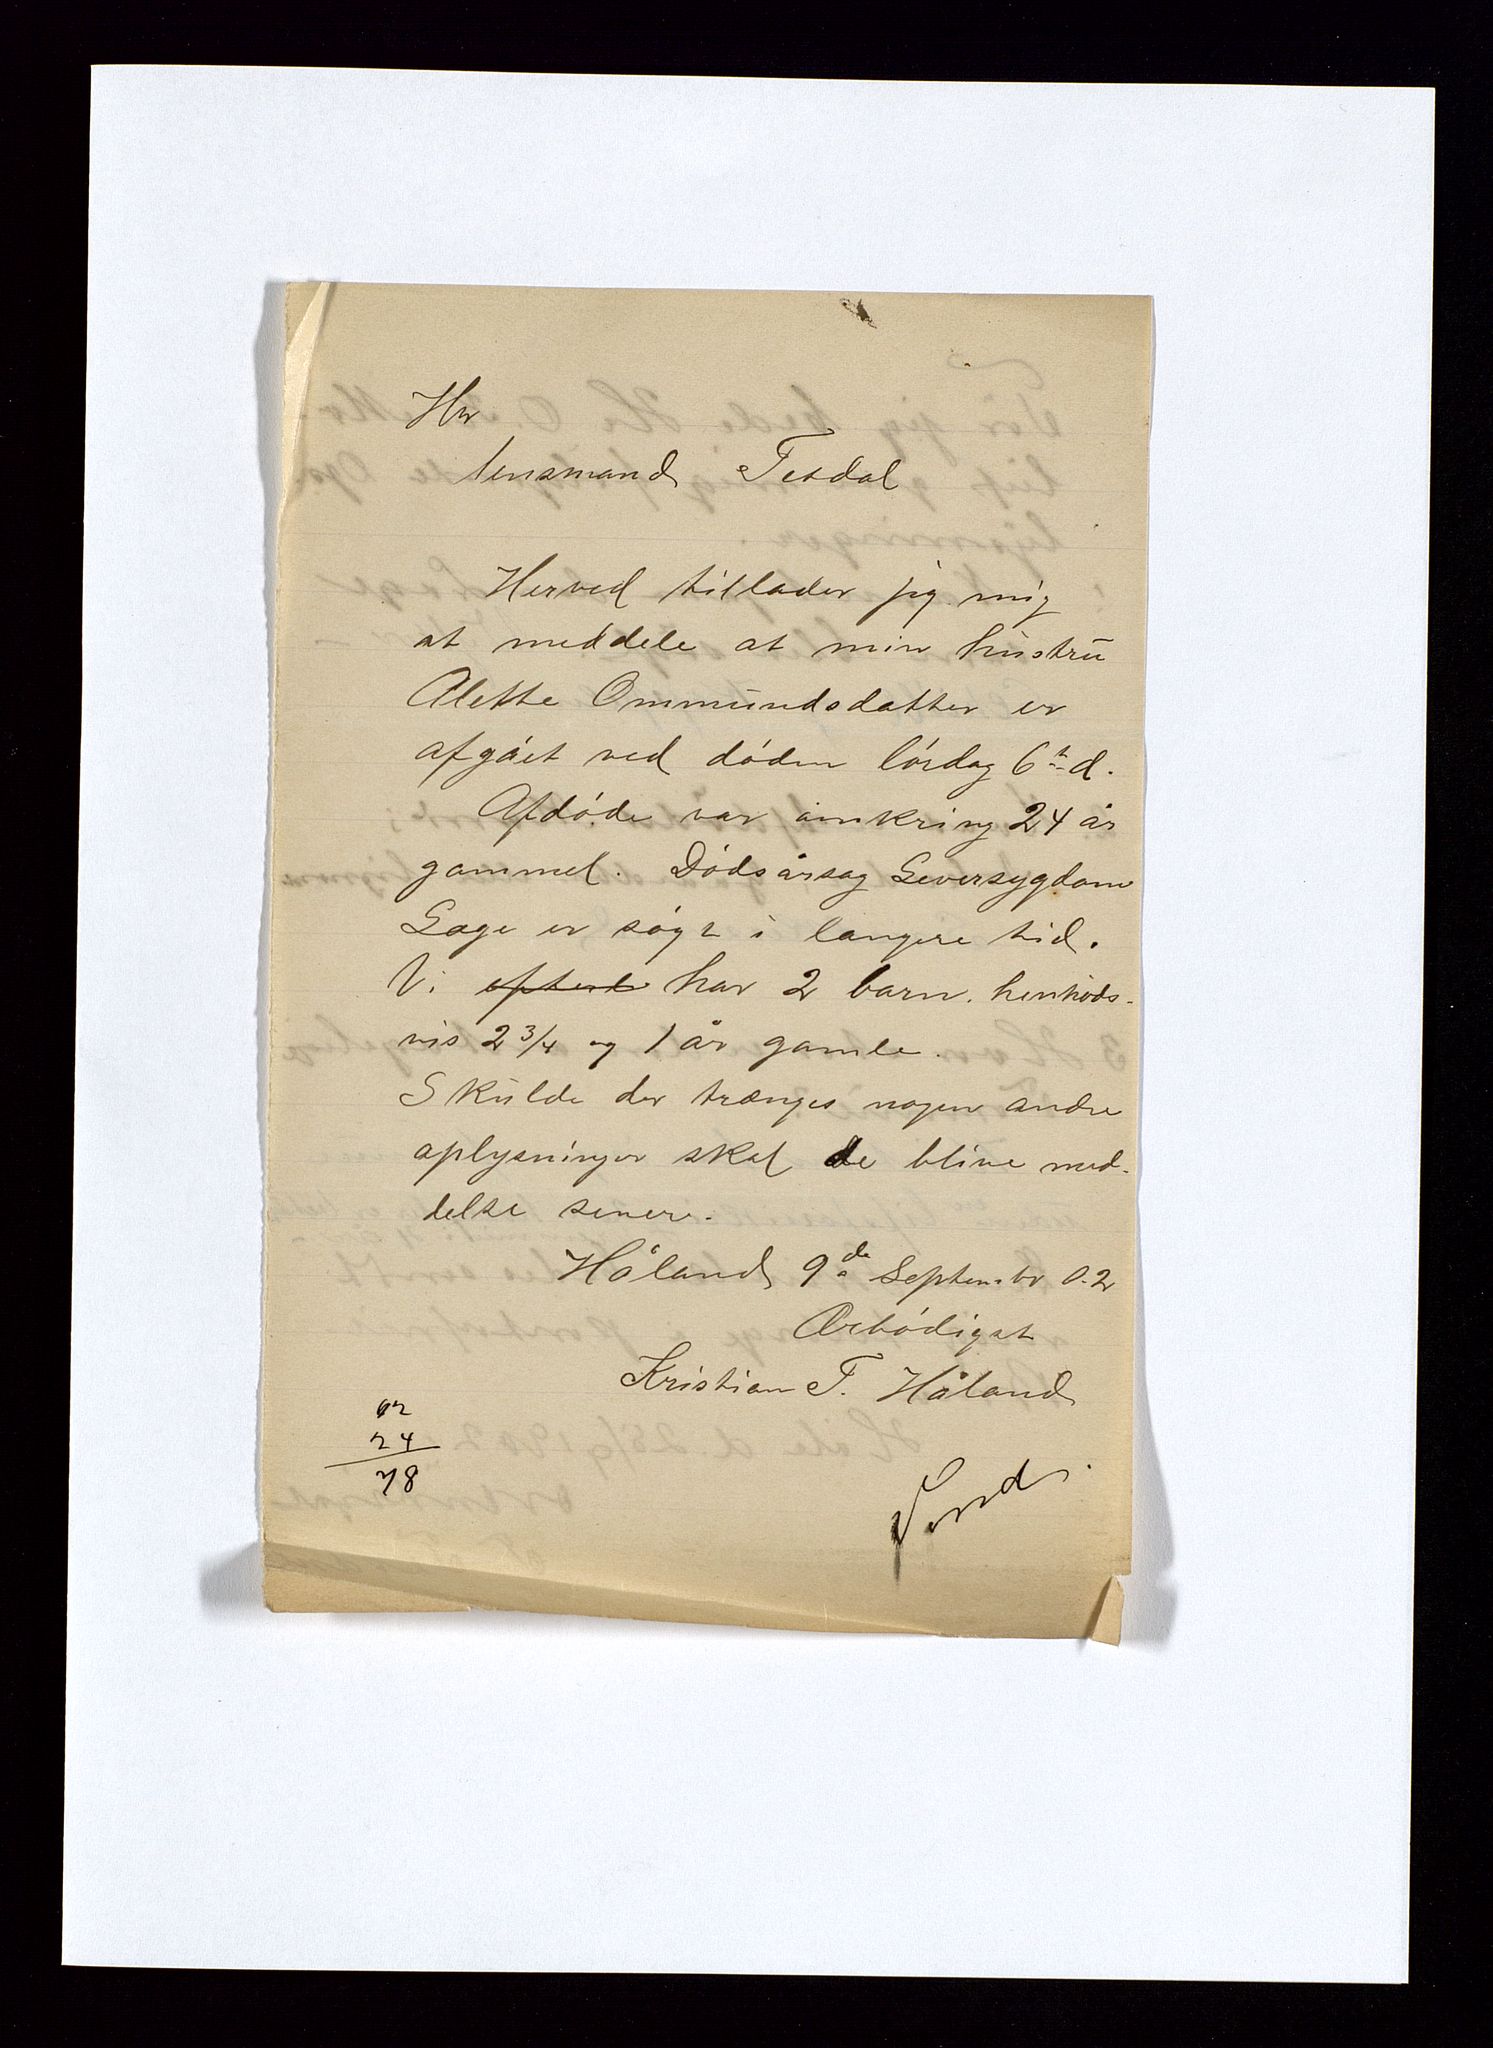 Hr
lensmand Tesdal
Herved tillader jeg mig
at meddele at min hustru
Alette Ommundsdatter er
afgået ved døden lördag 6te d.
Afdøde var omkring 24 år
gammel. Dødsårsag Leversygdom
Læge er søgt i længere tid.
Vi har 2 barn. henhods-
vis 2 3/4 og 1 år gamle.
Skulde der trænges nogen andre
oplysninger skal de blive med-
delse senere.
Håland 9de September 02
Ærbødigst
Kristian T. Håland
02
24
78